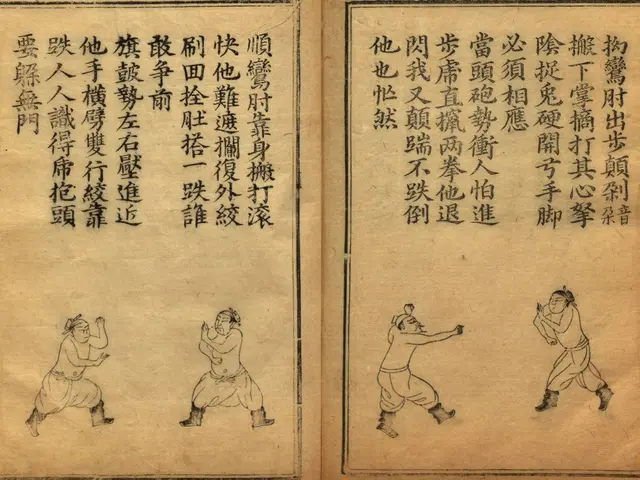 拗鸞肘出步顛剁音朶
搬下掌摘打其心拏
陰捉兔硬開弓手脚
必須相應
當頭砲勢衝人怕進
步虎直攛两拳他退
閃我又顛踹不跌倒
他也忙然
順鸞肘靠身搬打滚
快他難遮攔復外絞
刷囬拴肚搭一跌誰
敢争前
旗鼓勢左右壓進近
他手橫劈雙行絞靠
跌人人識得虎抱頭
要躲無門